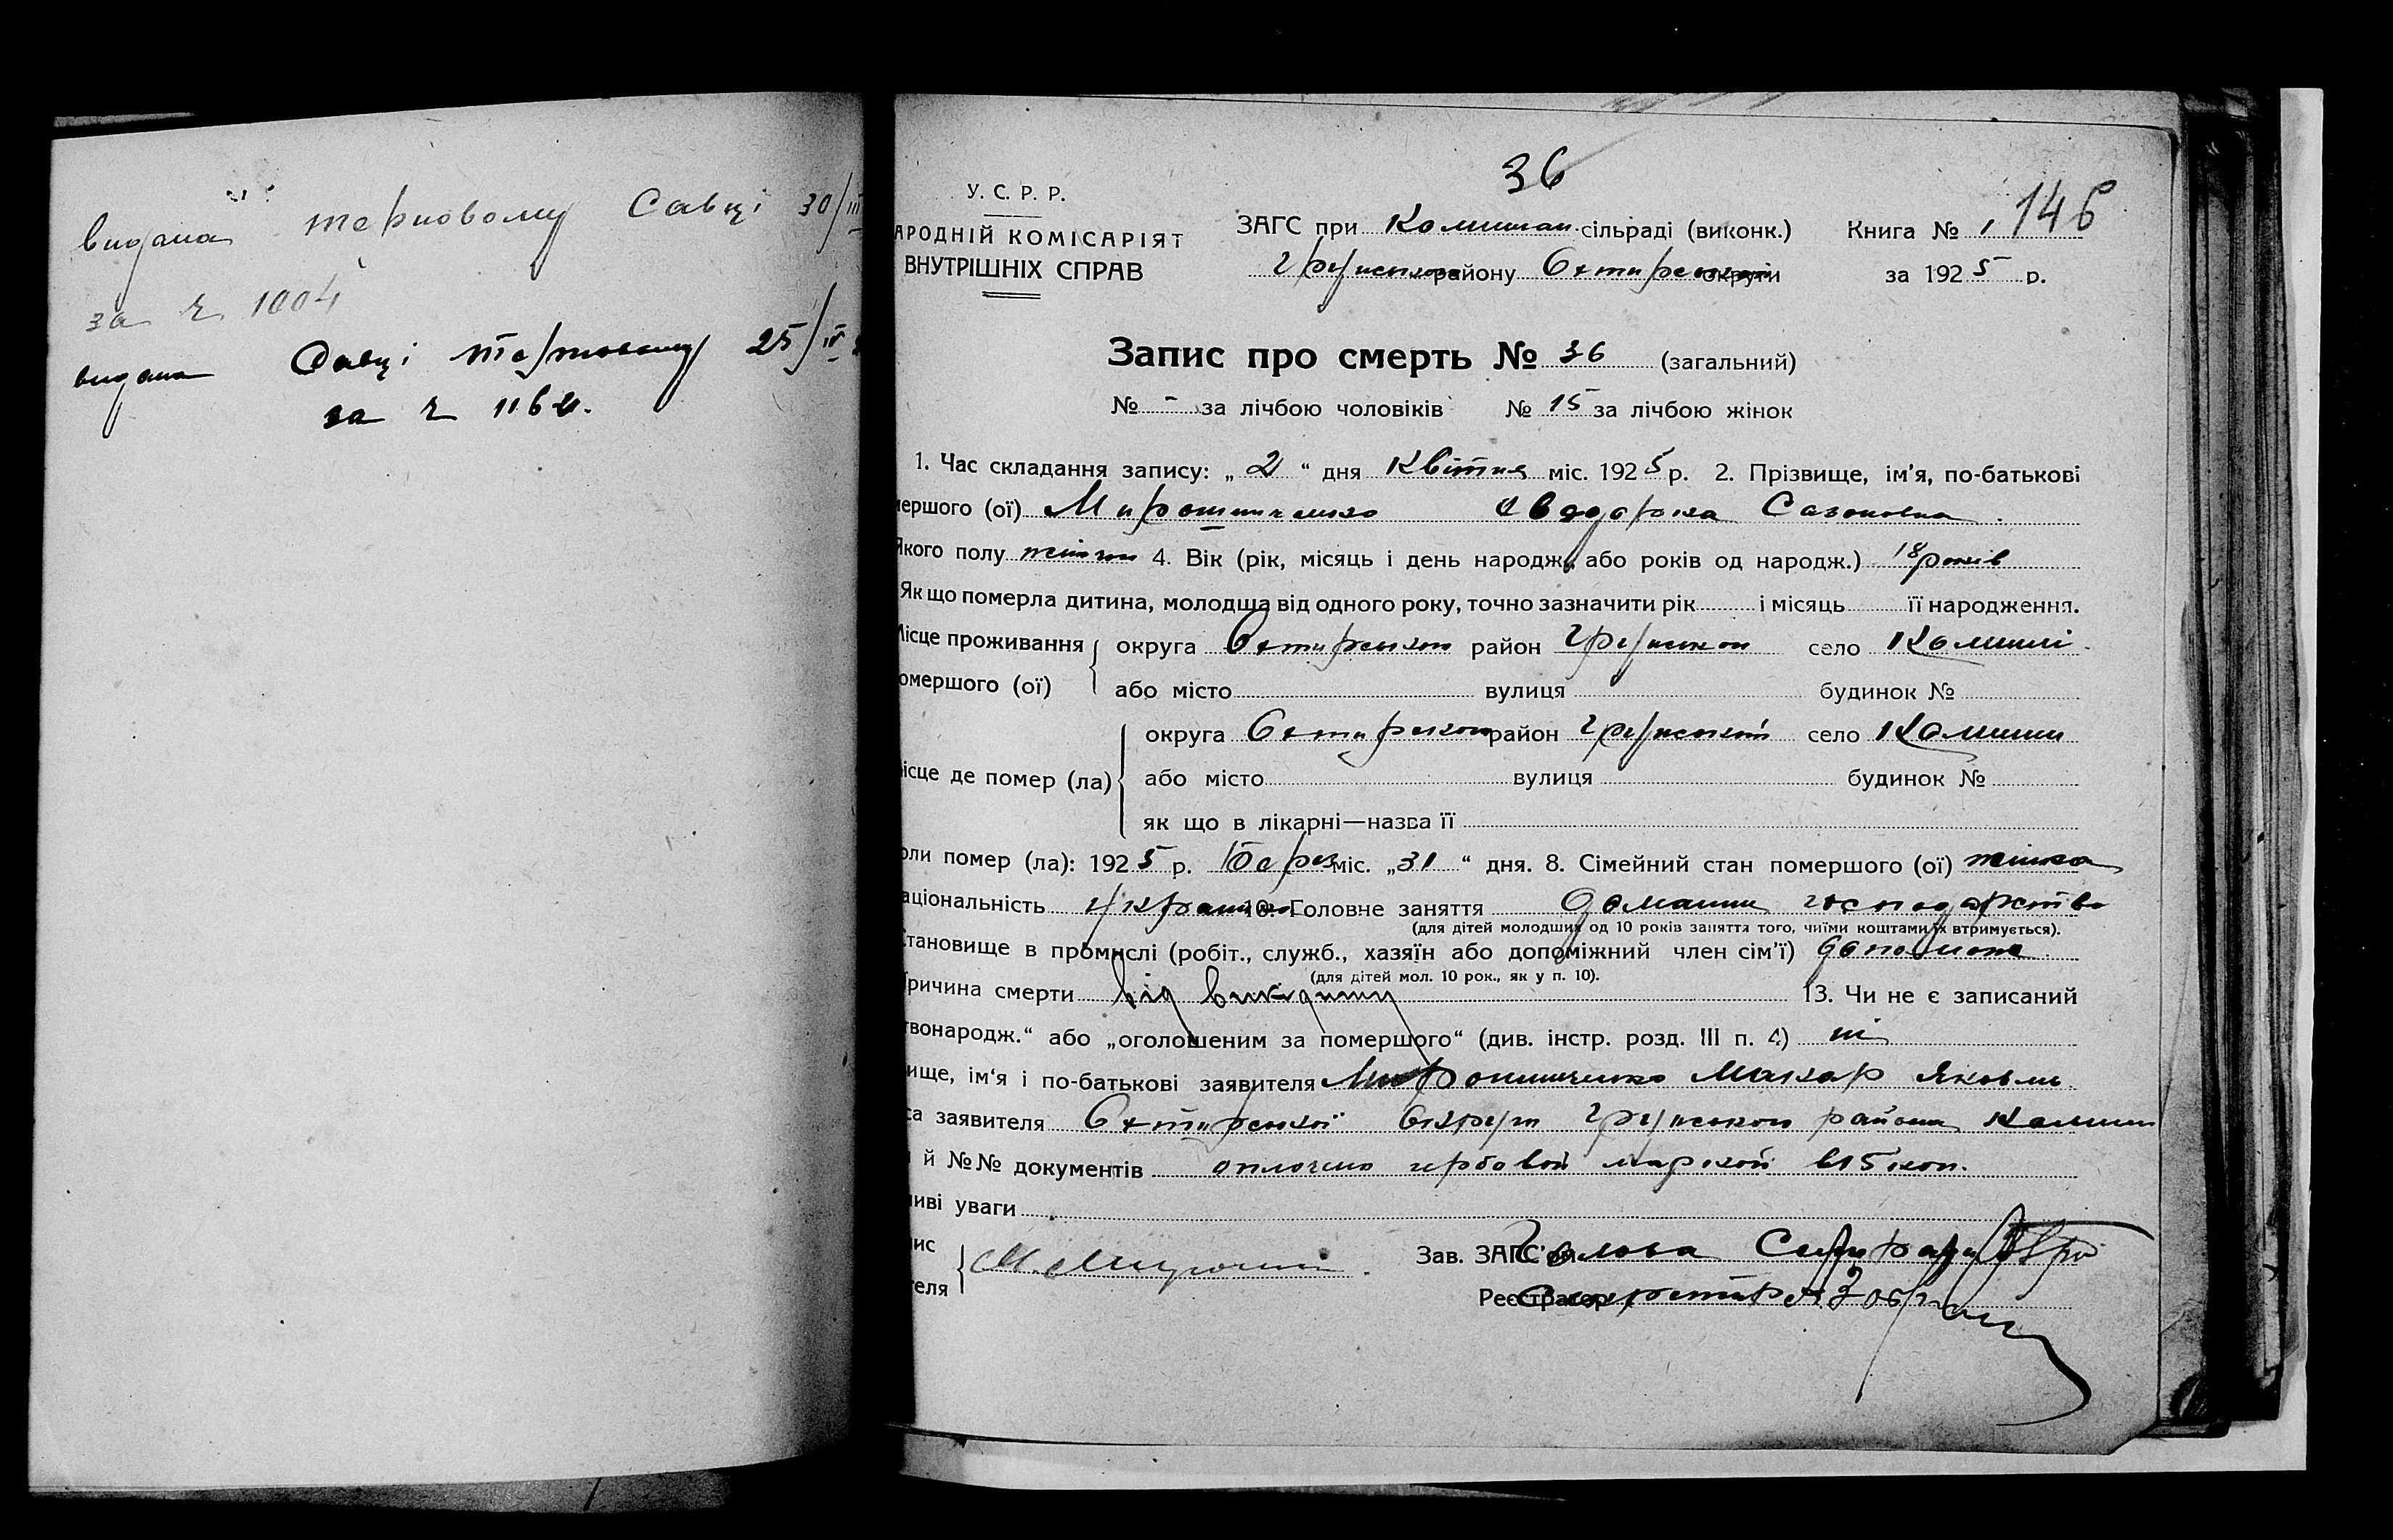 видана терновому Савці 30/III
за № 1004
видана Савці терновому 25/IV
за №
36
146
У. С. Р. Р.
АРОДНІЙ КОМІСАРІЯТ
ВНУТРІШНІХ СПРАВ
ЗАГС при Комишан. сільраді (виконк.)
Грунської району Охтирської округи
Книга № 1
за 1925 р.
Запис про смерть № 36 (загальний)
№ - за лічбою чоловіків № 15 за лічбою жінок
1. Час складання запису: „ 2 “ дня Квітня міс. 1925 р. 2. Прізвище, ім’я, по-батькові
мершого (ої) Мирошниченко Сазоновна
Якого полу жіночи 4. Вік (рік, місяць і день народж., або років од народж.) 18 років
Як що померла дитина, молодша від одного року, точно зазначити рік і місяць її народження.
Місце проживання
омершого (ої)
округа Охтирської район Грунської село Комиші
або місто вулиця будинок №
ісце де помер (ла)
округа Охтирської район Грунській село Комиши
або місто вулиця будинок №
як що в лікарні—назва її
оли помер (ла): 1925 р. Берез міс. „31“ дня. 8. Сімейний стан помершого (ої) жінка
аціональність 10. Головне заняття домашнє господарство
(для дітей молодших од 10 років заняття того, чиїми коштами їх втримується).
тановище в промислі (робіт., служб., хазяїн або допоміжний член сім’ї)
(для дітей мол. 10 рок., як у п. 10).
ричина смерти від викидишу 13. Чи не є записаний
твонародж.“ або „оголошеним за помершого“ (див. інстр. розд. III п. 4) ні
ище, ім‘я і по-батькові заявителя Мирошниченко Макар Яковль
са заявителя Охтирської Округи Грунського района Комиши
й №№ документів оплочено гербовой маркой в 15 коп.
иві уваги
ис
теля
М. Мирошни
Зав. ЗАГС'ом Голова Сільради
Реєстратор Секретар